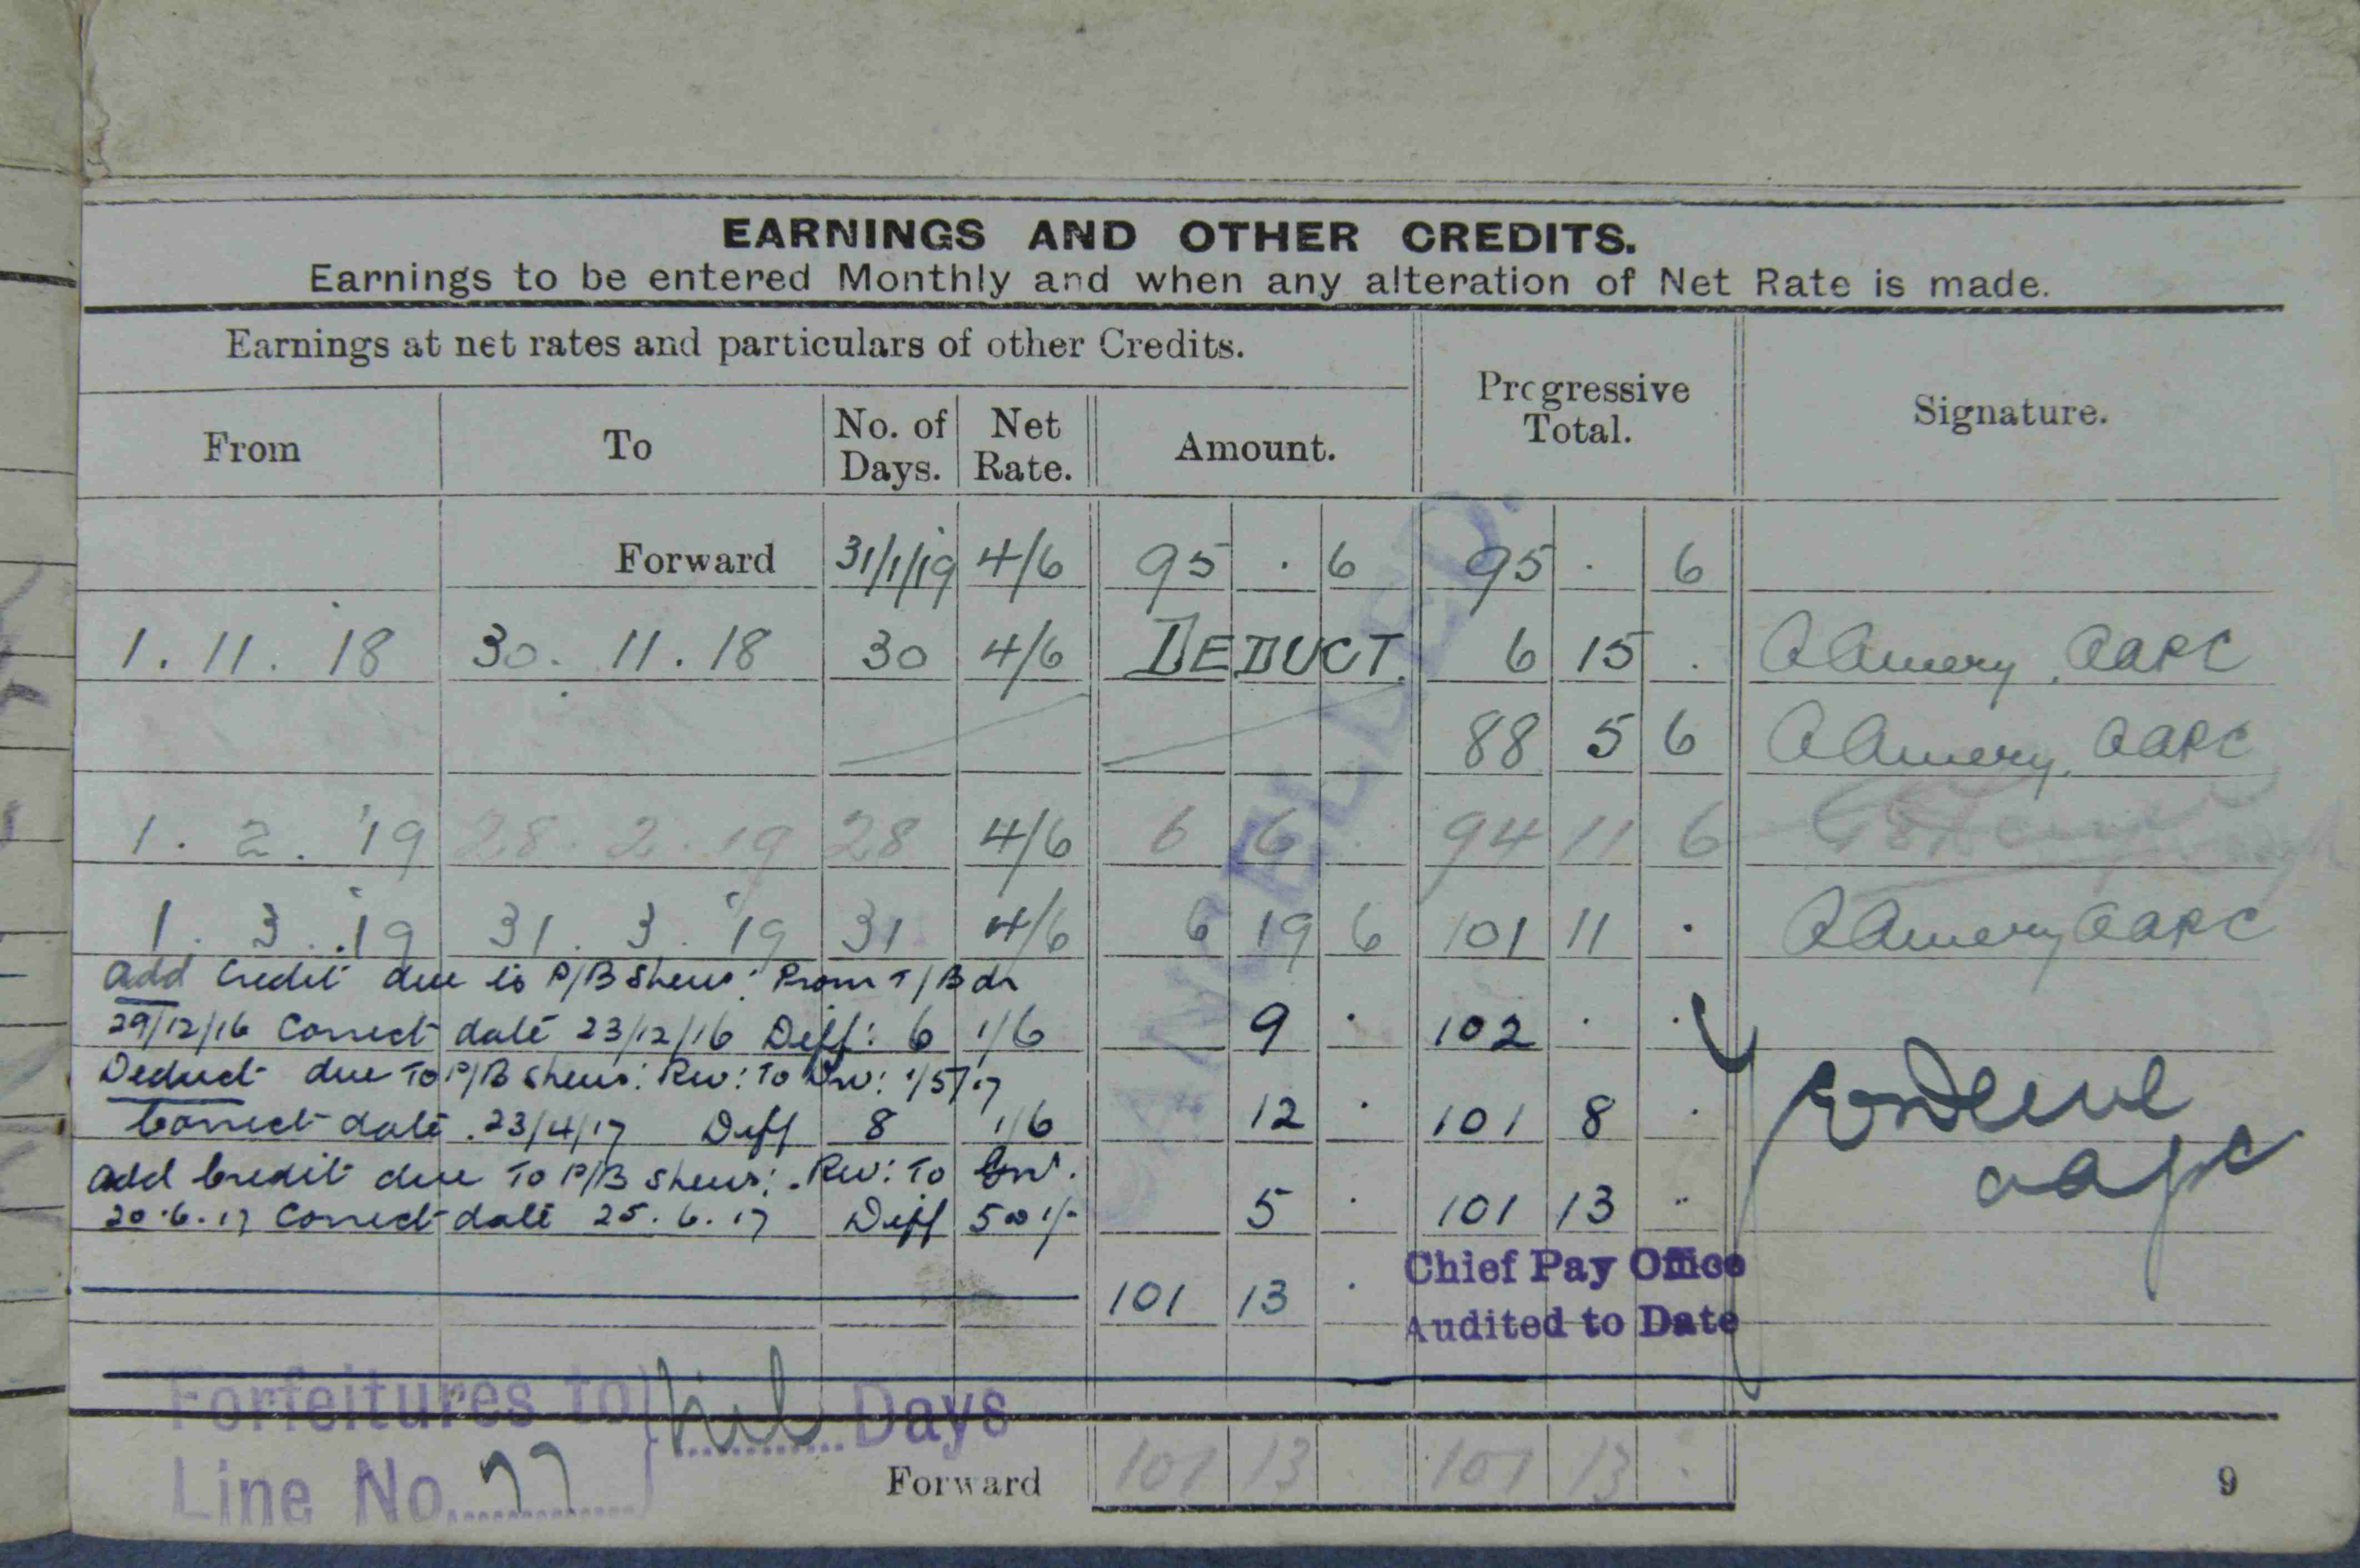 EARNINGS AND OTHER CREDITS.
Earnings to be entered Monthly and when any alteration of Net Rate is made.
Earnings at net rates and particulars of other Credits.
From To No. of Days. Net Rate. Amount. Progressive Total. Signature.
Forward 31/1/19 4/6 95 . 6 95 . 6
1. 11. 18 30. 11. 18 30 4/6 DEDUCT. 6 15 . AAmery, AAPC
88 5 6 AAmery, AAPC
1. 2. '19 28. 2. 19 28 4/6 6 6 . 94 11 6
1. 3. '19 31. 3. '19 31 4/6 6 19 6 101 11 . AAmery AAPC
Add Credit due to P/B Shews: Prom T/Bdr
29/12/16 Correct date 23/12/16 Diff: 6 1/6 9 . 102 . .
Deduct due To P/B Shews: Rev: To Dvr: 1/5/17
Correct date. 23/4/17 Diff 8 1/6 12 . 101 8 .
Add Credit due To P/B Shews: Rev: To Gnr.
20.6.17 Correct date 25.6.17 Diff 5 @ 1/- 5 . 101 13 ..
aapc
101 13 .
Chief Pay Office
Audited to Date
Forfeitures to } Nil Days
Line No. 77
Forward 101 13 . 101 13 .
9
CANCELLED.